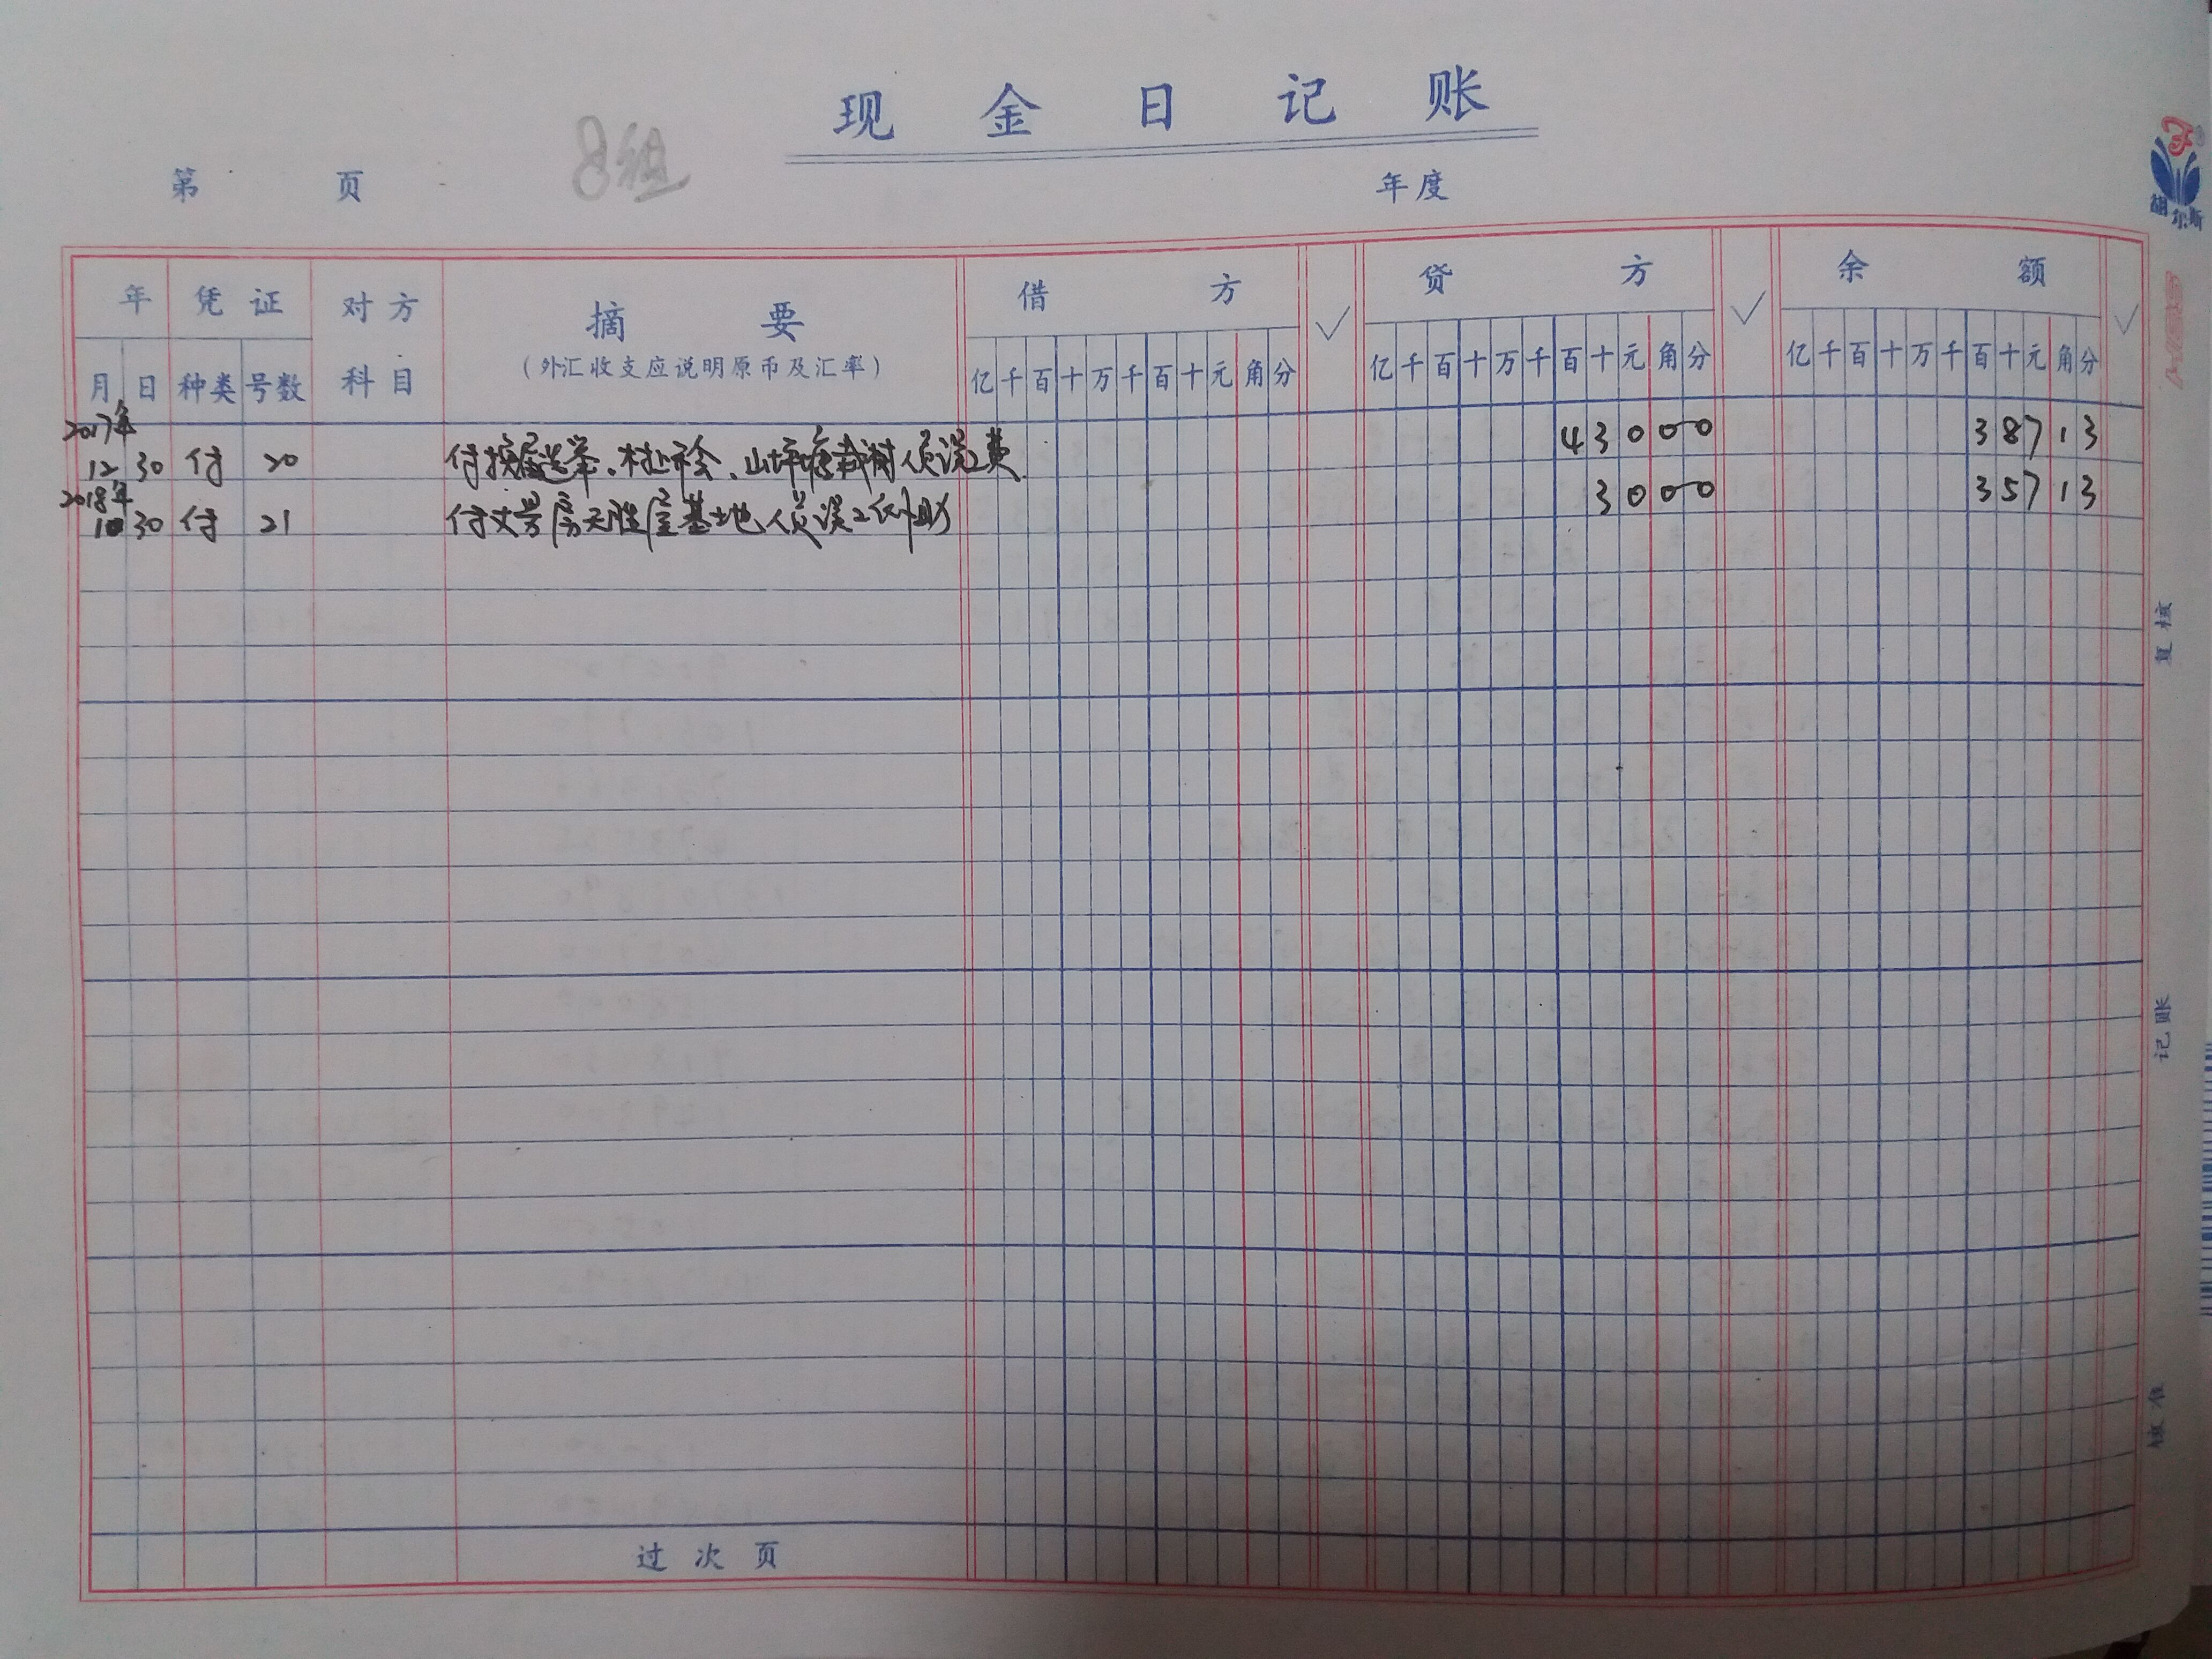 现金日记账
8组
第 页
年度
年 凭证 对方 摘要 借方 ✓ 贷方 ✓ 余额 ✓
月 日 种类 号数 科目 (外汇收支应说明原币及汇率) 亿千百十万千百十元角分 亿千百十万千百十元角分 亿千百十万千百十元角分
2017年
12 30 付 20 付换届选举、村社会、山坪塘栽树人员误工费 43000 38713
2018年
30 付 21 付丈 房 屋基土地人员误工补助 3000 35713
过次页
复核
记账
胡尔斯